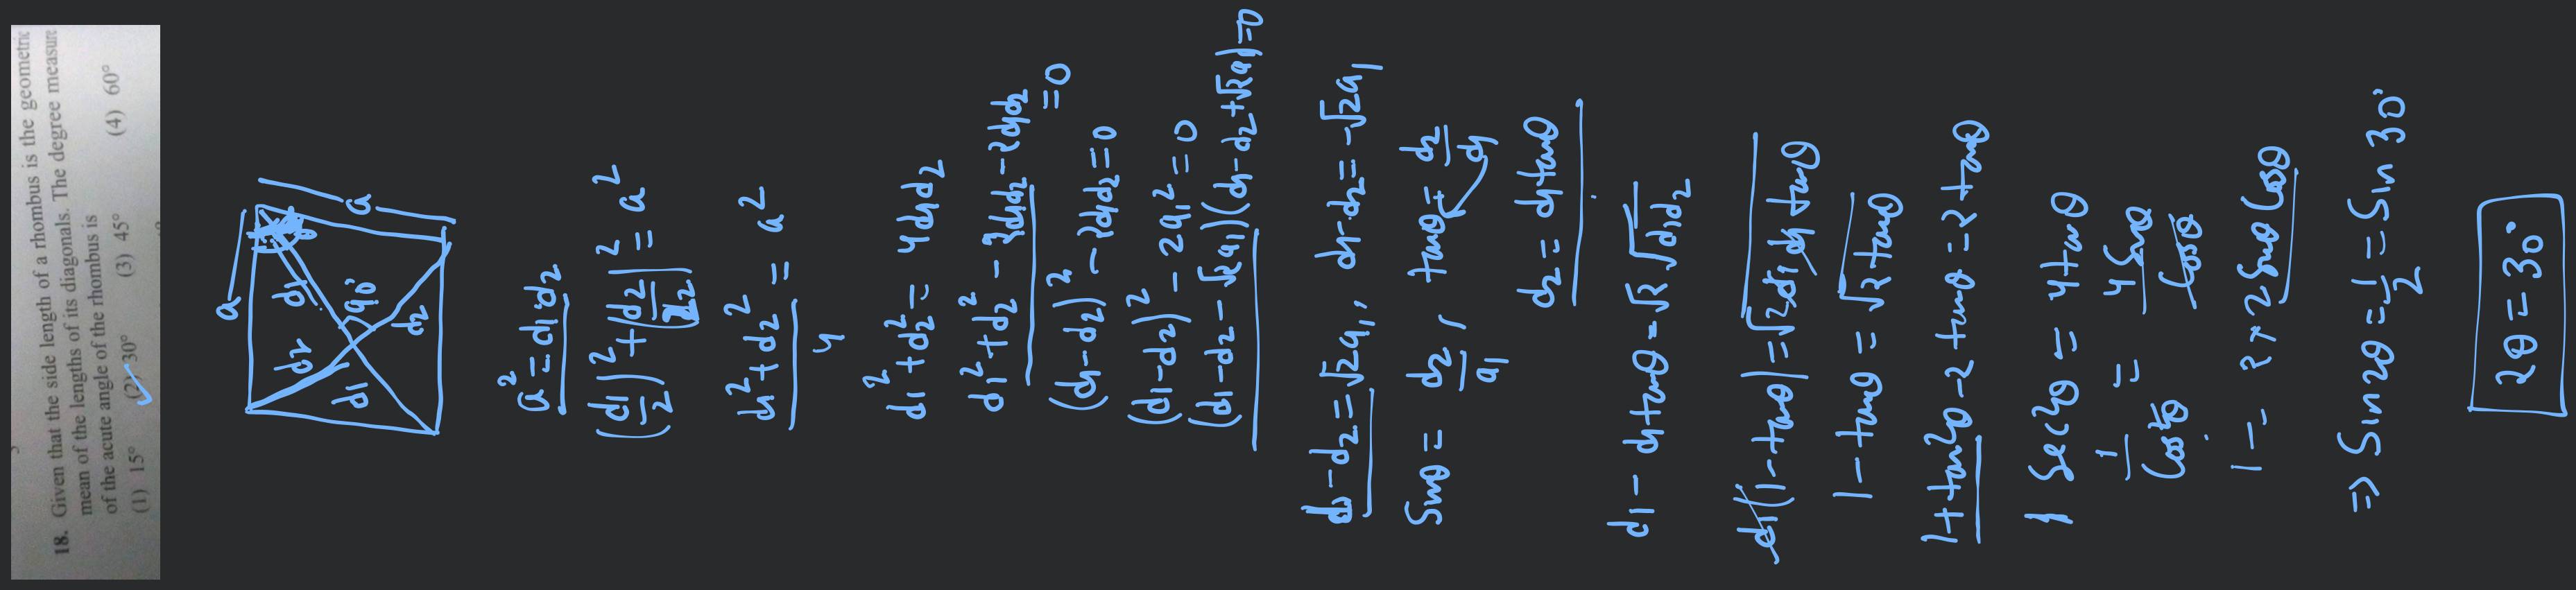 18. Given that the side length of a rhombus is the geometric
mean of the lengths of its diagonals. The degree measure
of the acute angle of the rhombus is
(1) 15° (2) 30° (3) 45° (4) 60°
a
a
d1
d2
90°
d1
d2
a² = d1d2
(d1/2)² + (d2/2)² = a²
d1² + d2² / 4 = a²
d1² + d2² = 4d1d2
d1² + d2² - 2d1d2 - 2d1d2 = 0
(d1-d2)² - 2d1d2 = 0
(d1-d2)² - 2a1² = 0
(d1-d2-√2a1)(d1-d2+√2a1)=0
d1-d2=√2a1, d1-d2=-√2a1
Sinθ = d2/a1, tanθ = d2/d1
d2 = d1tanθ
d1 - d1tanθ = √2 √d1d2
d1(1-tanθ) = √2d1d1tanθ
1-tanθ = √2tanθ
1+tan²θ-2tanθ=2tanθ
Sec²θ = 4tanθ
1/Cos²θ = 4Sinθ/Cosθ
1 = 2×2SinθCosθ
=> Sin2θ = 1/2 = Sin30°
2θ = 30°